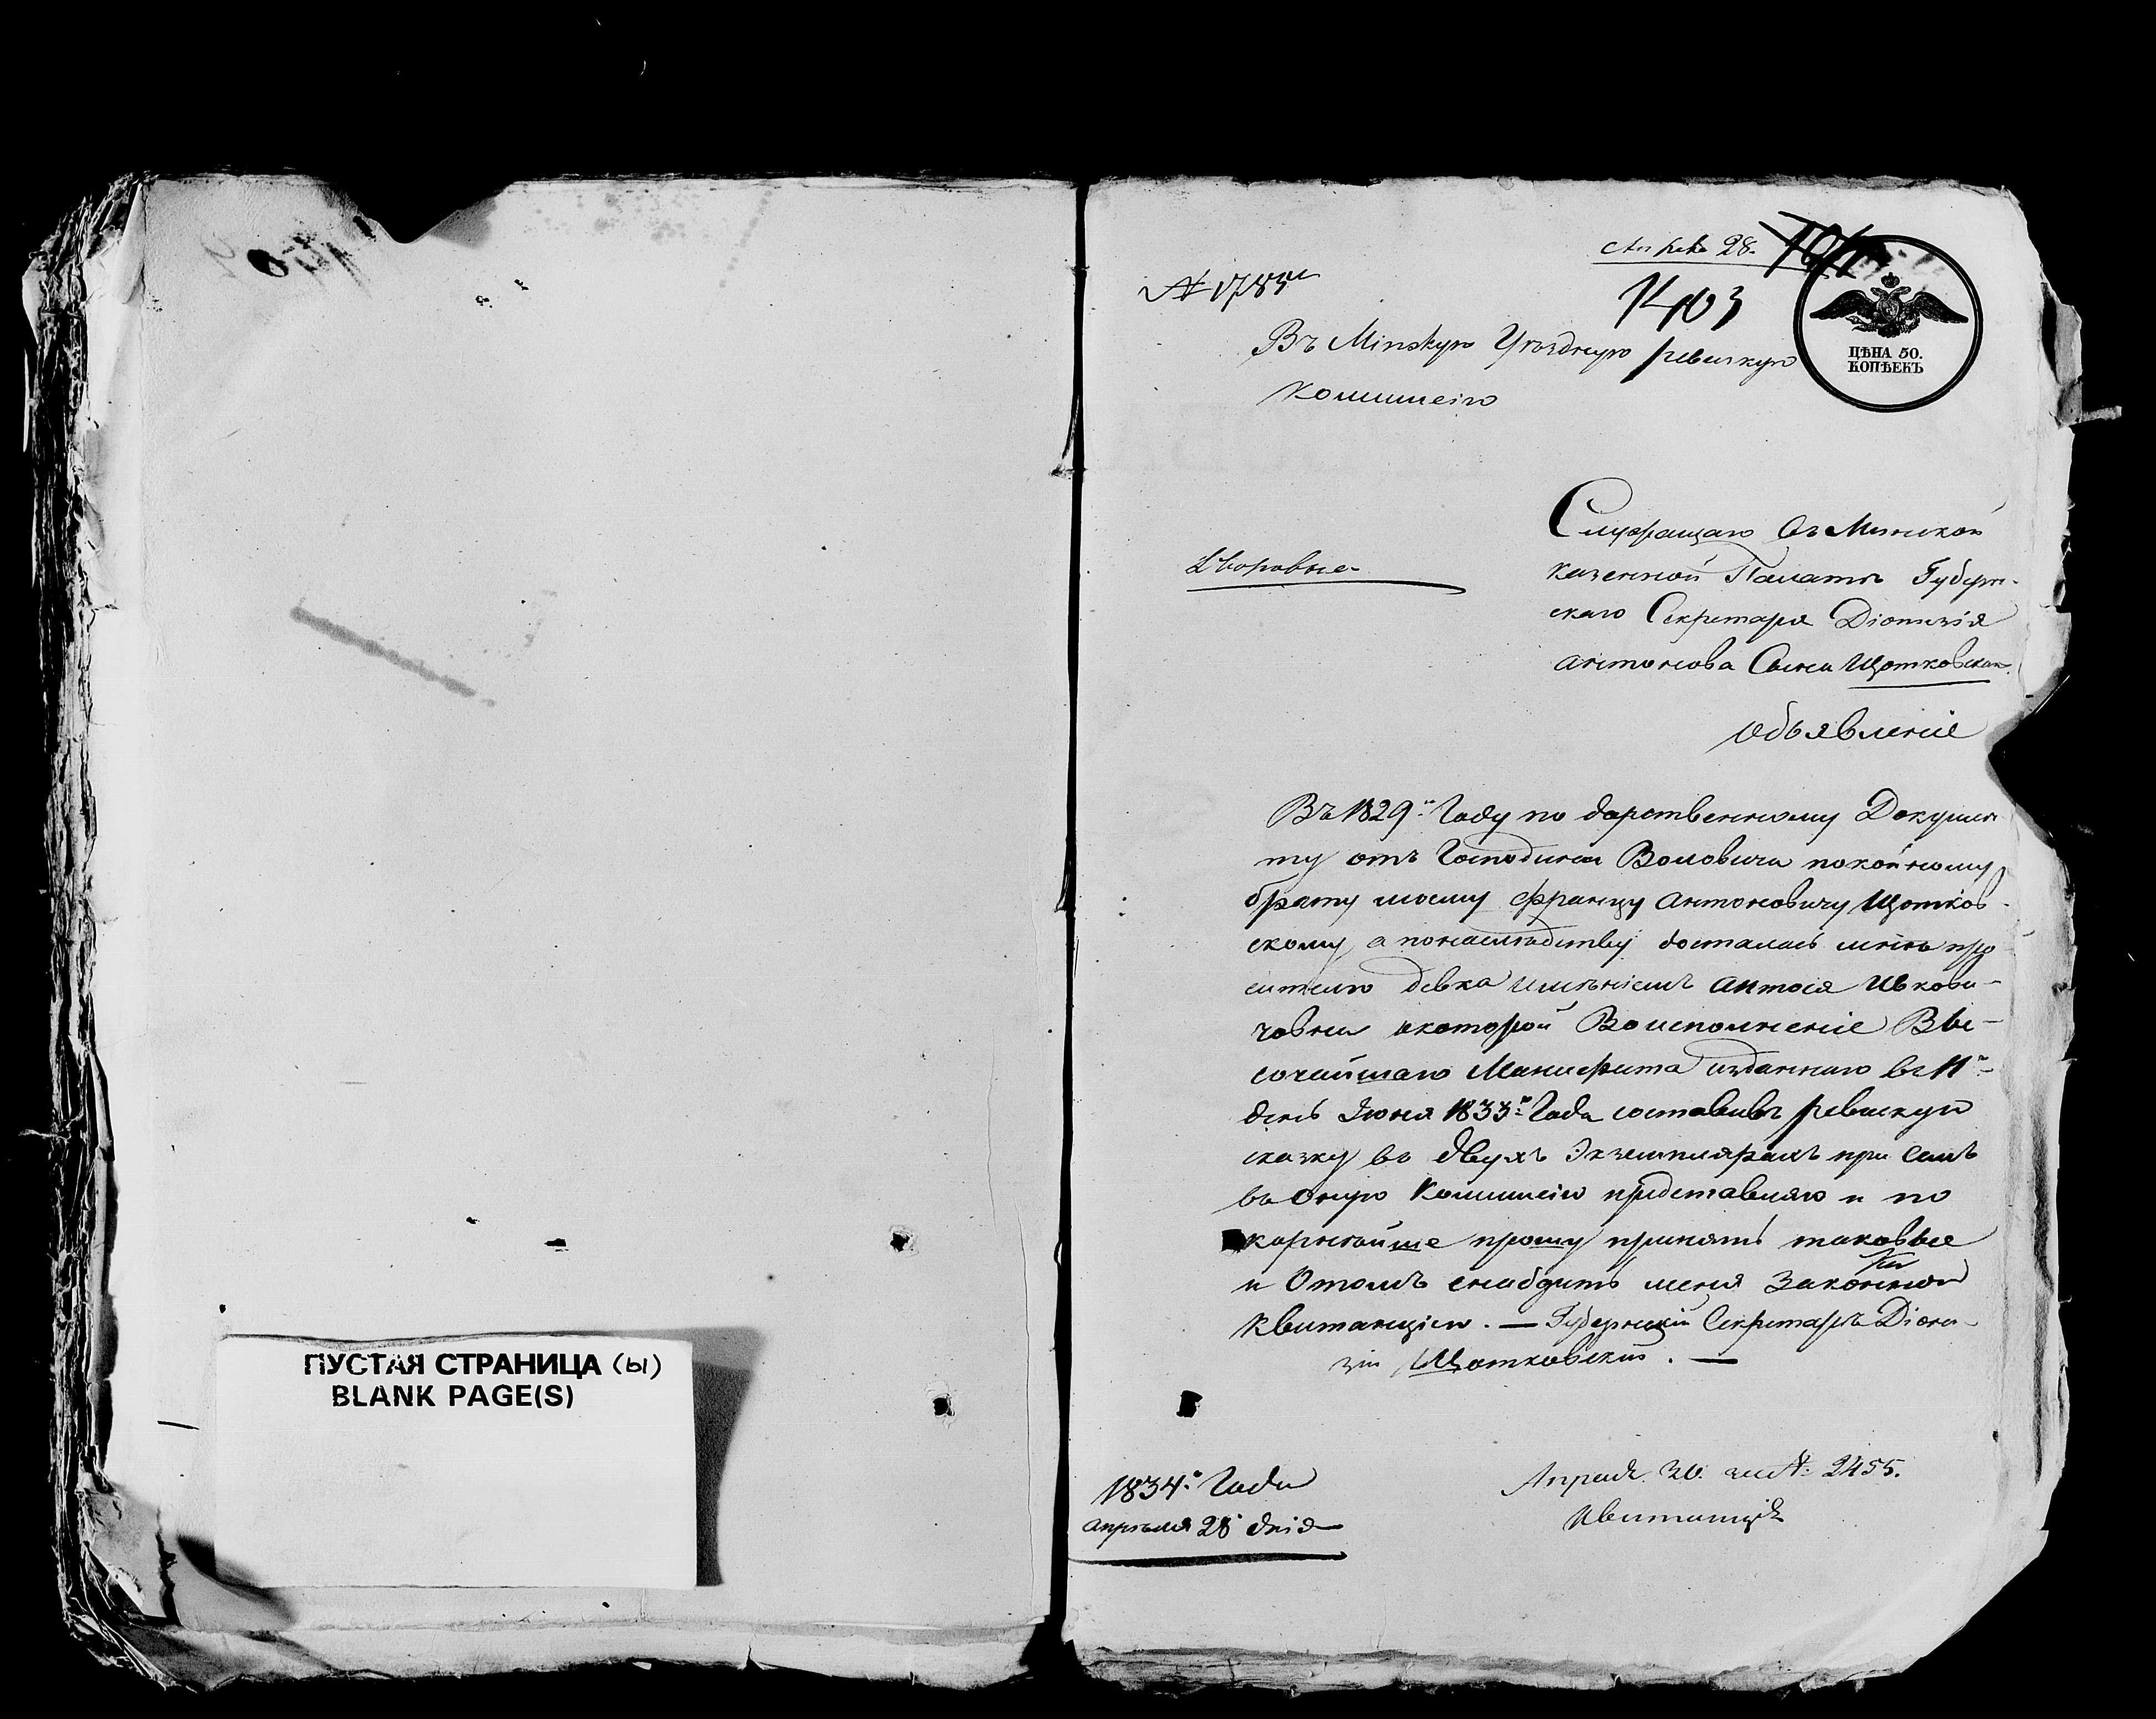 ПУСТАЯ СТРАНИЦА (ы)
BLANK PAGE(S)
28.
1403
№ 1783
ЦѢНА 50.
КОПѢЕКЪ
Въ Минскую Уѣздную ревизкую
Коммисію
Служащаго въ Минской
Дворовые
казенной Палатѣ Губерн-
скаго Секретаря Діонизія
Антонова Сына Щотковскаго
Объявленіе
Въ 1829 Году по дарственному Докумен
ту отъ Господина Воловича покойному
брату моему Францу Антоновичу Щотков-
скому а понаслѣдству досталась мнѣ про
сителю девка имѣніемъ Антося Ивкови-
човна о которой Во исполненіе Вы-
сочайшаго Манифеста изданнаго въ
день Іюня 1833 Года составивъ ревискую
сказку въ двухъ Экземплярахъ при семъ
въ оную Коммисію представляю и по
корнѣйше прошу принять таковые
и Отомъ снабдить меня Законною
Квитанціею. — Губернскій Секретарь Діони-
зій Щотковскій. —
1834 Года
Апрѣля 28 дня
Апреля 30 за № 2455.
Квитанція